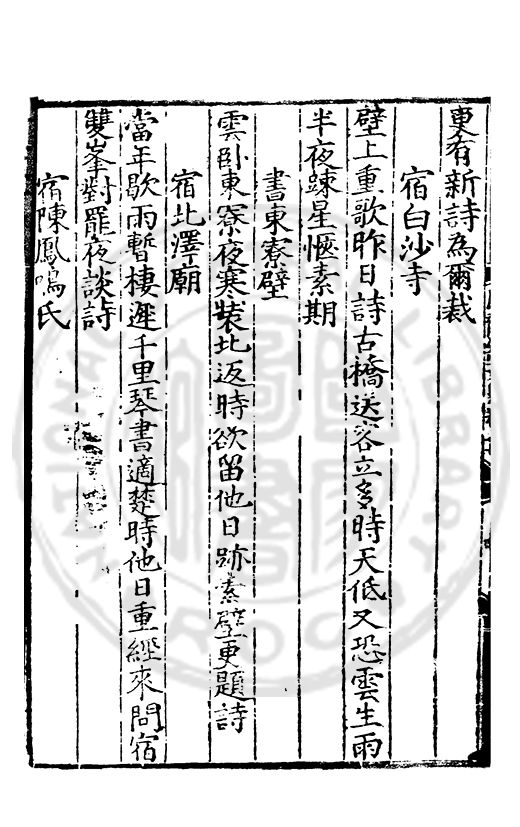 更有新詩為爾裁
宿白沙寺
壁上重歌昨日詩古橋送客立多時天低又恐雲生雨
半夜踈星愜素期
書東寮壁
雲卧東寮夜寒裝北返時欲留他日跡素壁更題詩
宿北澤廟
當年歇雨暫棲遲千里琴書適楚時他日重經來問宿
雙峯對罷夜談詩
宿陳鳳鳴氏
LIBRARY